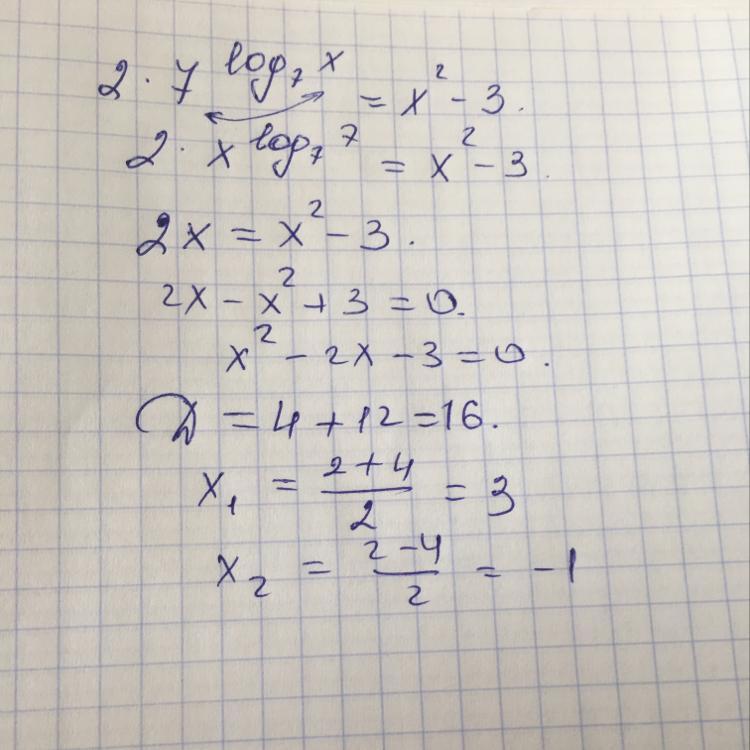 2 · 7^{log₇ x} = x² - 3.
2 · x^{log₇ 7} = x² - 3.
2x = x² - 3.
2x - x² + 3 = 0.
x² - 2x - 3 = 0.
D = 4 + 12 = 16.
x₁ = \frac{2+4}{2} = 3
x₂ = \frac{2-4}{2} = -1